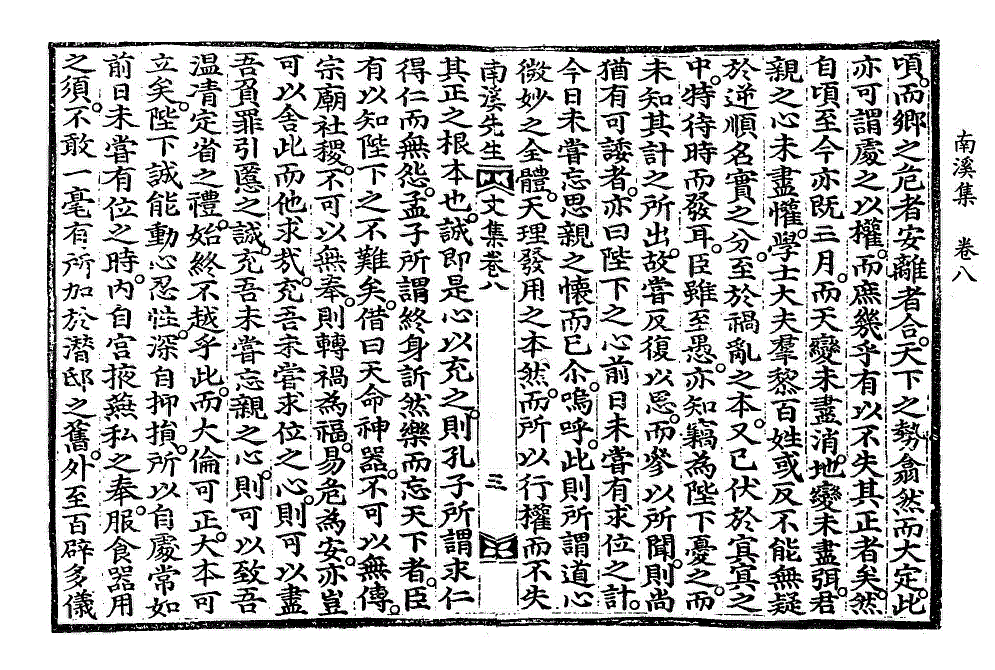 南溪集　卷八
頃。而鄉之危者安離者合。天下之勢翕然而大定。此
亦可謂處之以權。而庶幾乎有以不失其正者矣。然
自頃至今亦既三月。而天變未盡消。地變未盡弭。君
親之心未盡懽。學士大夫羣黎百姓或反不能無疑
於逆順名實之分。至於禍亂之本。又已伏於冥冥之
中。特待時而發耳。臣雖至愚。亦知竊為陛下憂之。而
未知其計之所出。故嘗反復以思。而參以所聞。則尚
猶有可諉者。亦曰陛下之心前日未嘗有求位之計。
今日未嘗忘思親之懷而已尒。嗚呼。此則所謂道心
微妙之全體。天理發用之本然。而所以行權而不失
南溪先生文集卷八　三
其正之根本也。誠即是心以充之。則孔子所謂求仁
得仁而無怨。孟子所謂終身訢然樂而忘天下者。臣
有以知陛下之不難矣。借曰天命神器。不可以無傳。
宗廟社稷。不可以無奉。則轉禍為福。易危為安。亦豈
可以舍此而他求㢤。充吾未嘗求位之心。則可以盡
吾負罪引慝之誠。充吾未嘗忘親之心。則可以致吾
温凊定省之禮。始終不越乎此。而大倫可正。大本可
立矣。陛下誠能動心忍性。深自抑損。所以自處常如
前日未嘗有位之時。內自宮掖燕私之奉。服食器用
之須。不敢一毫有所加於潛邸之舊。外至百辟多儀